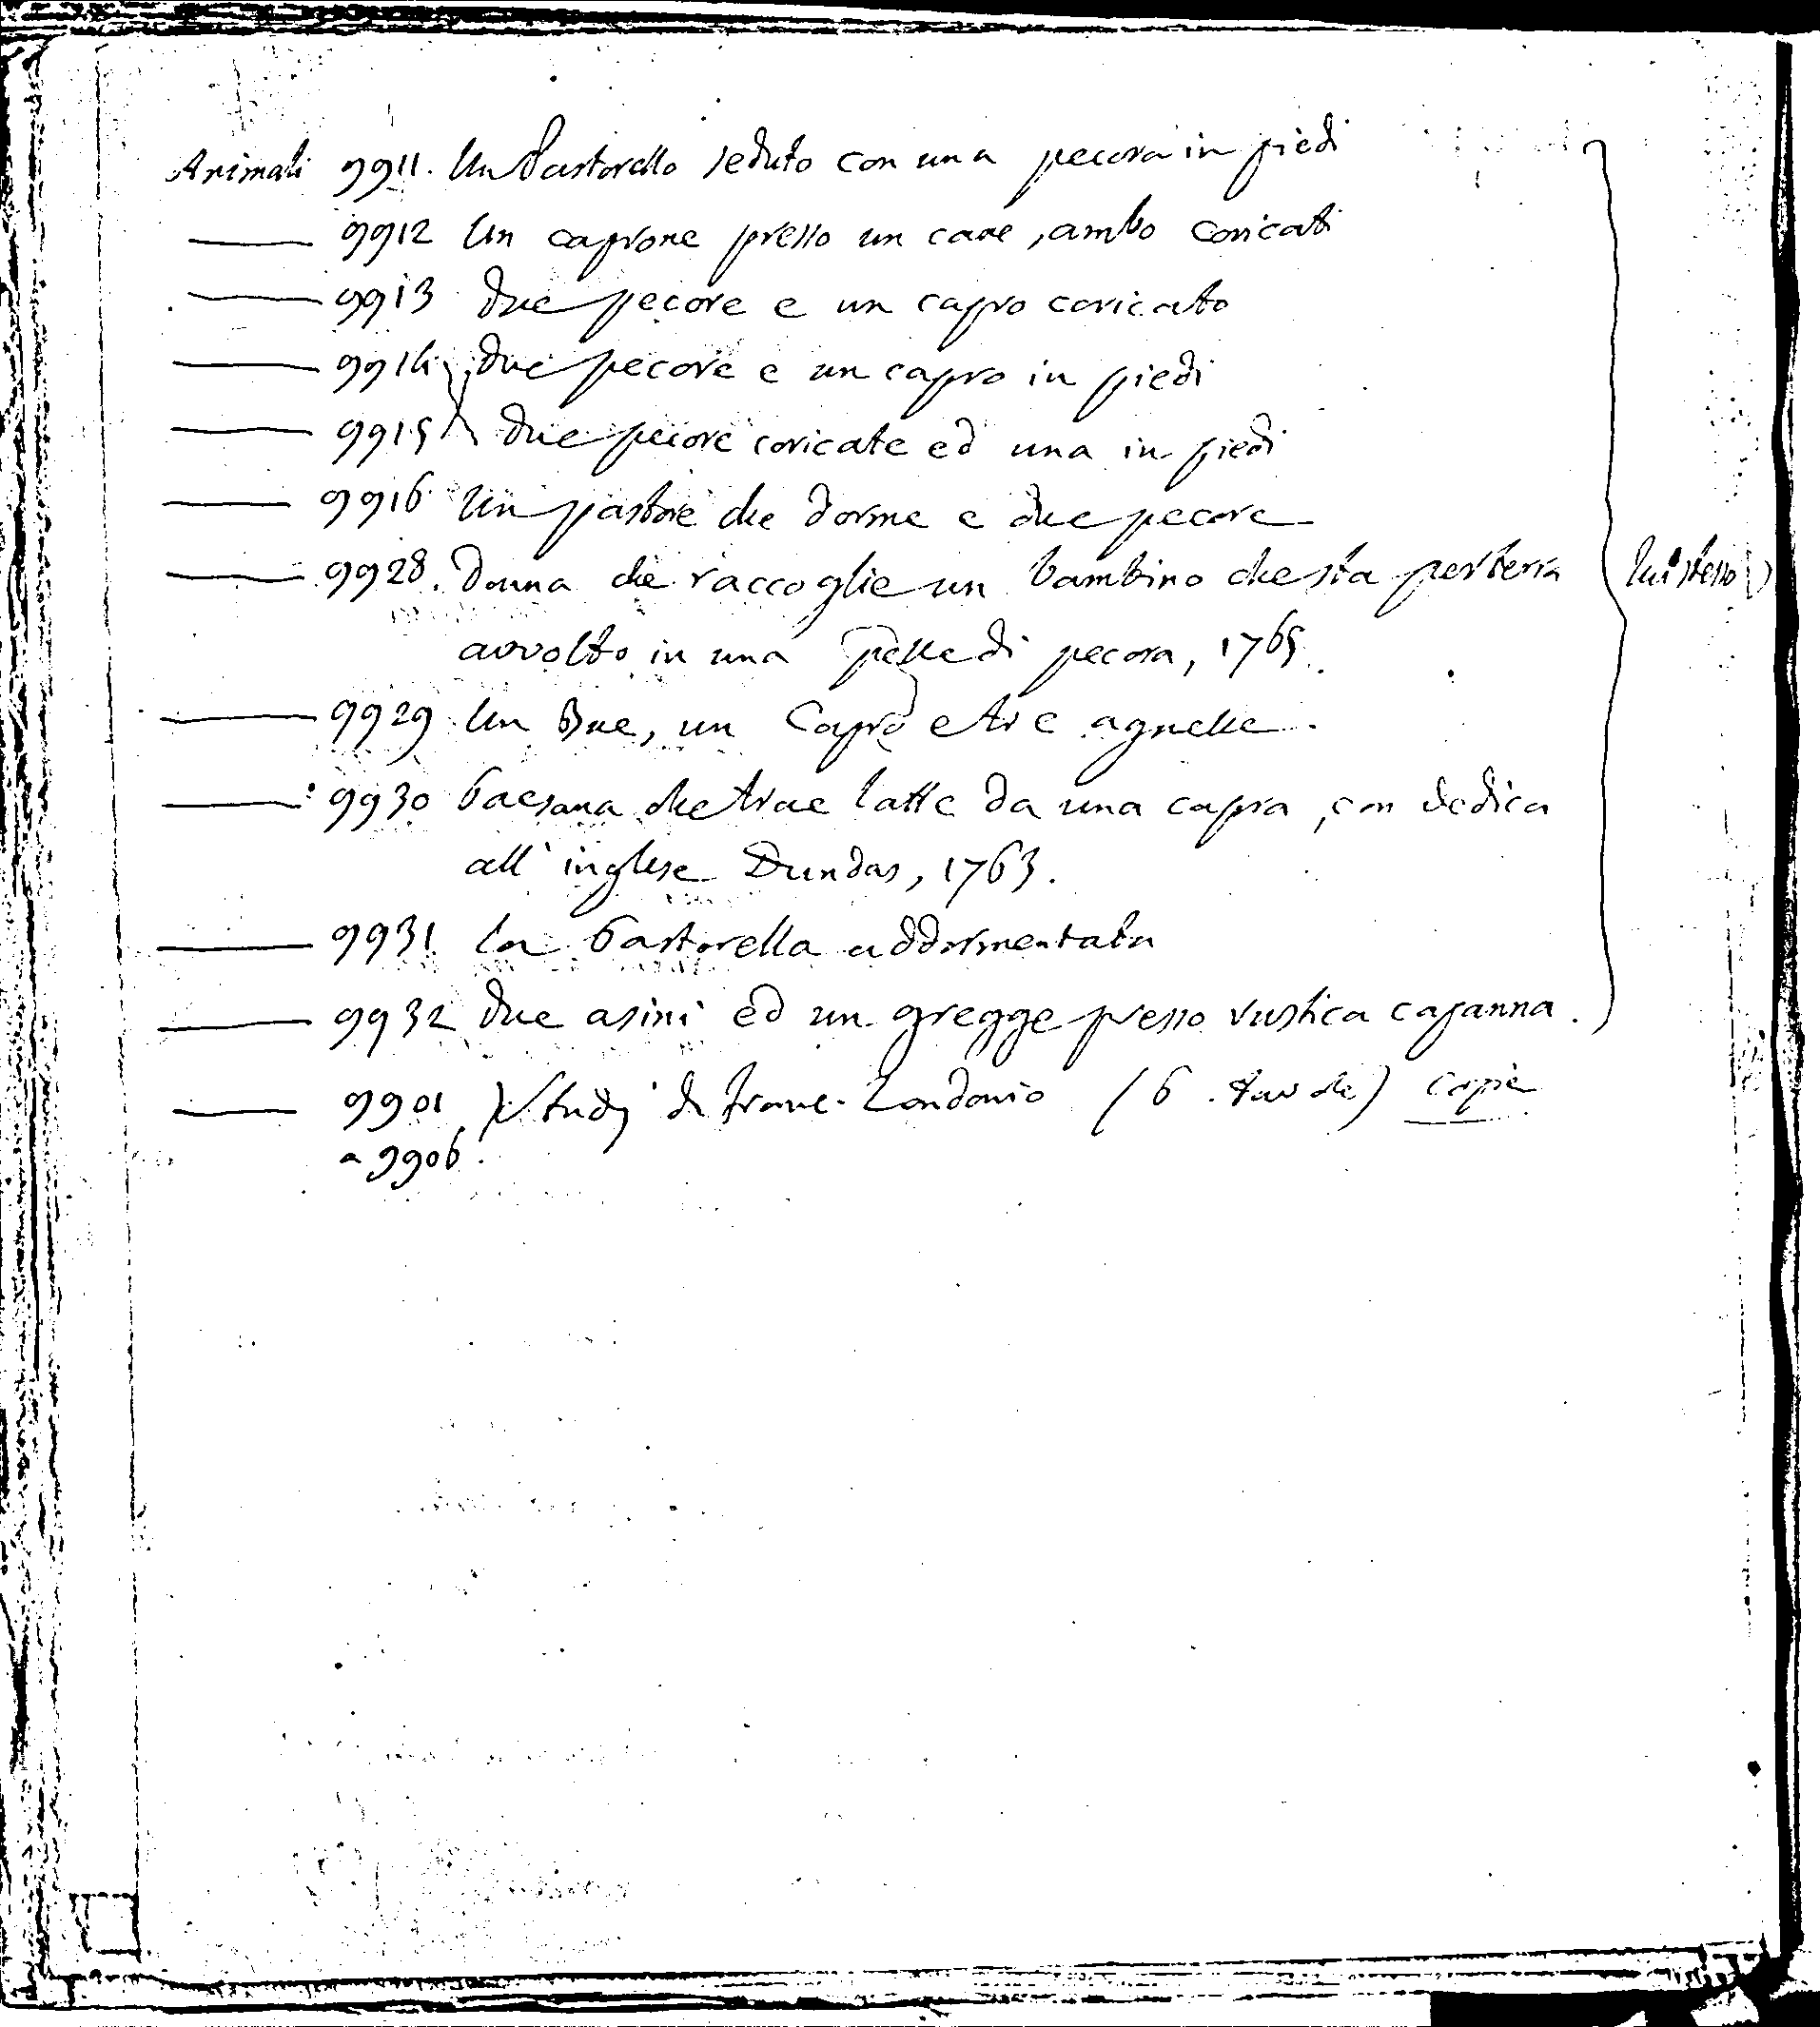 Animali 9911. Un Pastorello seduto con una pecora in piedi
—— 9912 Un caprone presso un cane, ambo coricati
—— 9913 due pecore e un capro coricato
—— 9914 due pecore e un capro in piedi
—— 9915 due pecore coricate ed una in piedi
—— 9916 Un pastore che dorme e due pecore
—— 9928. Donna che raccoglie un bambino che sta per terra lui stesso
avvolto in una pelle di pecora, 1765.
—— 9929 Un Bue, un Capro e tre agnelle.
—— 9930 Paesana che trae latte da una capra, con dedica
all' inglese Dundas, 1763.
—— 9931 la Pastorella addormentata
—— 9932 due asini ed un gregge presso rustica capanna.
—— 9901 Studj di Franc. Londonio (6 tavole) copie
a 9906.